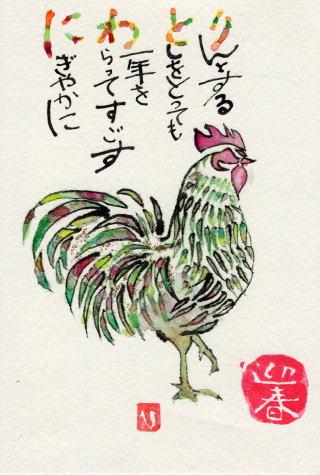 にぎやかに
わらってすごす
一年を
としをとっても
りんとする
迎春